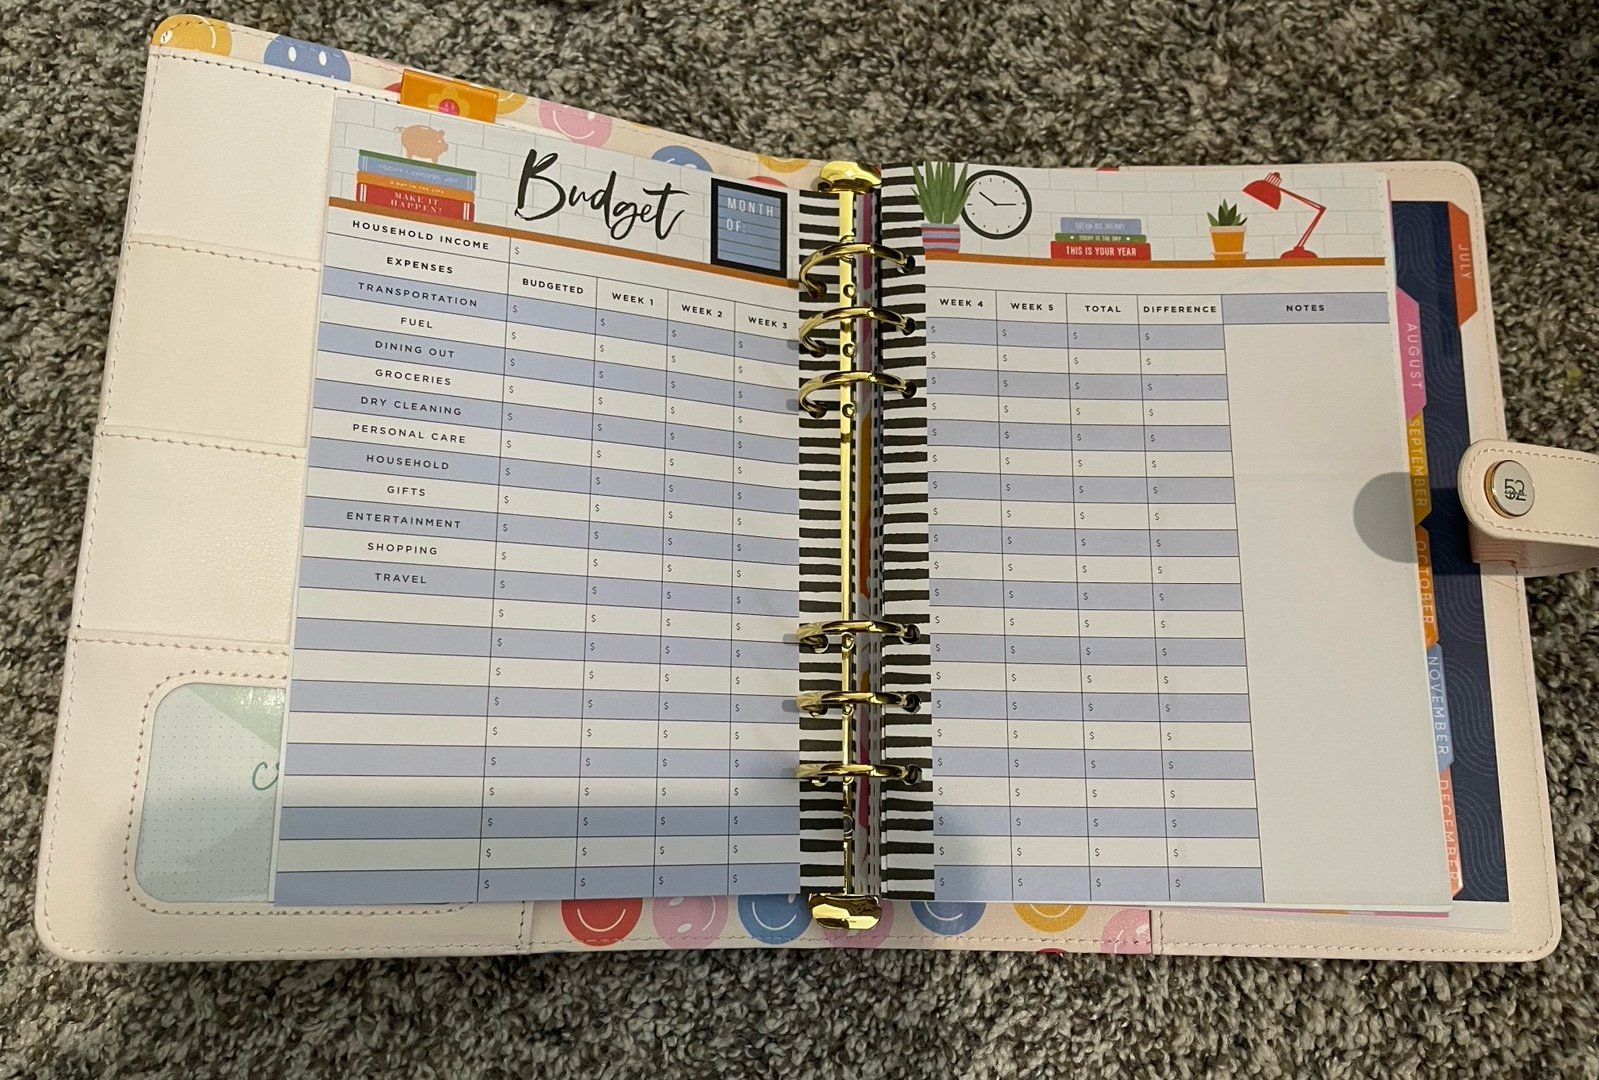 TODAY I CHOOSE JOY
A DAY IN THE LIFE
MAKE IT
HAPPEN!
Budget
MONTH
OF:
HOUSEHOLD INCOME $
EXPENSES BUDGETED WEEK 1 WEEK 2 WEEK 3
TRANSPORTATION $ $ $ $
FUEL $ $ $ $
DINING OUT $ $ $ $
GROCERIES $ $ $ $
DRY CLEANING $ $ $ $
PERSONAL CARE $ $ $ $
HOUSEHOLD $ $ $ $
GIFTS $ $ $ $
ENTERTAINMENT $ $ $ $
SHOPPING $ $ $ $
TRAVEL $ $ $ $
$ $ $ $
$ $ $ $
$ $ $ $
$ $ $ $
$ $ $ $
$ $ $ $
$ $ $ $
$ $ $ $
$ $ $ $
$ $ $ $
DREAM BIG DREAMS
TODAY IS THE DAY
THIS IS YOUR YEAR
WEEK 4 WEEK 5 TOTAL DIFFERENCE NOTES
$ $ $ $
$ $ $ $
$ $ $ $
$ $ $ $
$ $ $ $
$ $ $ $
$ $ $ $
$ $ $ $
$ $ $ $
$ $ $ $
$ $ $ $
$ $ $ $
$ $ $ $
$ $ $ $
$ $ $ $
$ $ $ $
$ $ $ $
$ $ $ $
$ $ $ $
$ $ $ $
$ $ $ $
JULY
AUGUST
SEPTEMBER
OCTOBER
NOVEMBER
DECEMBER
52